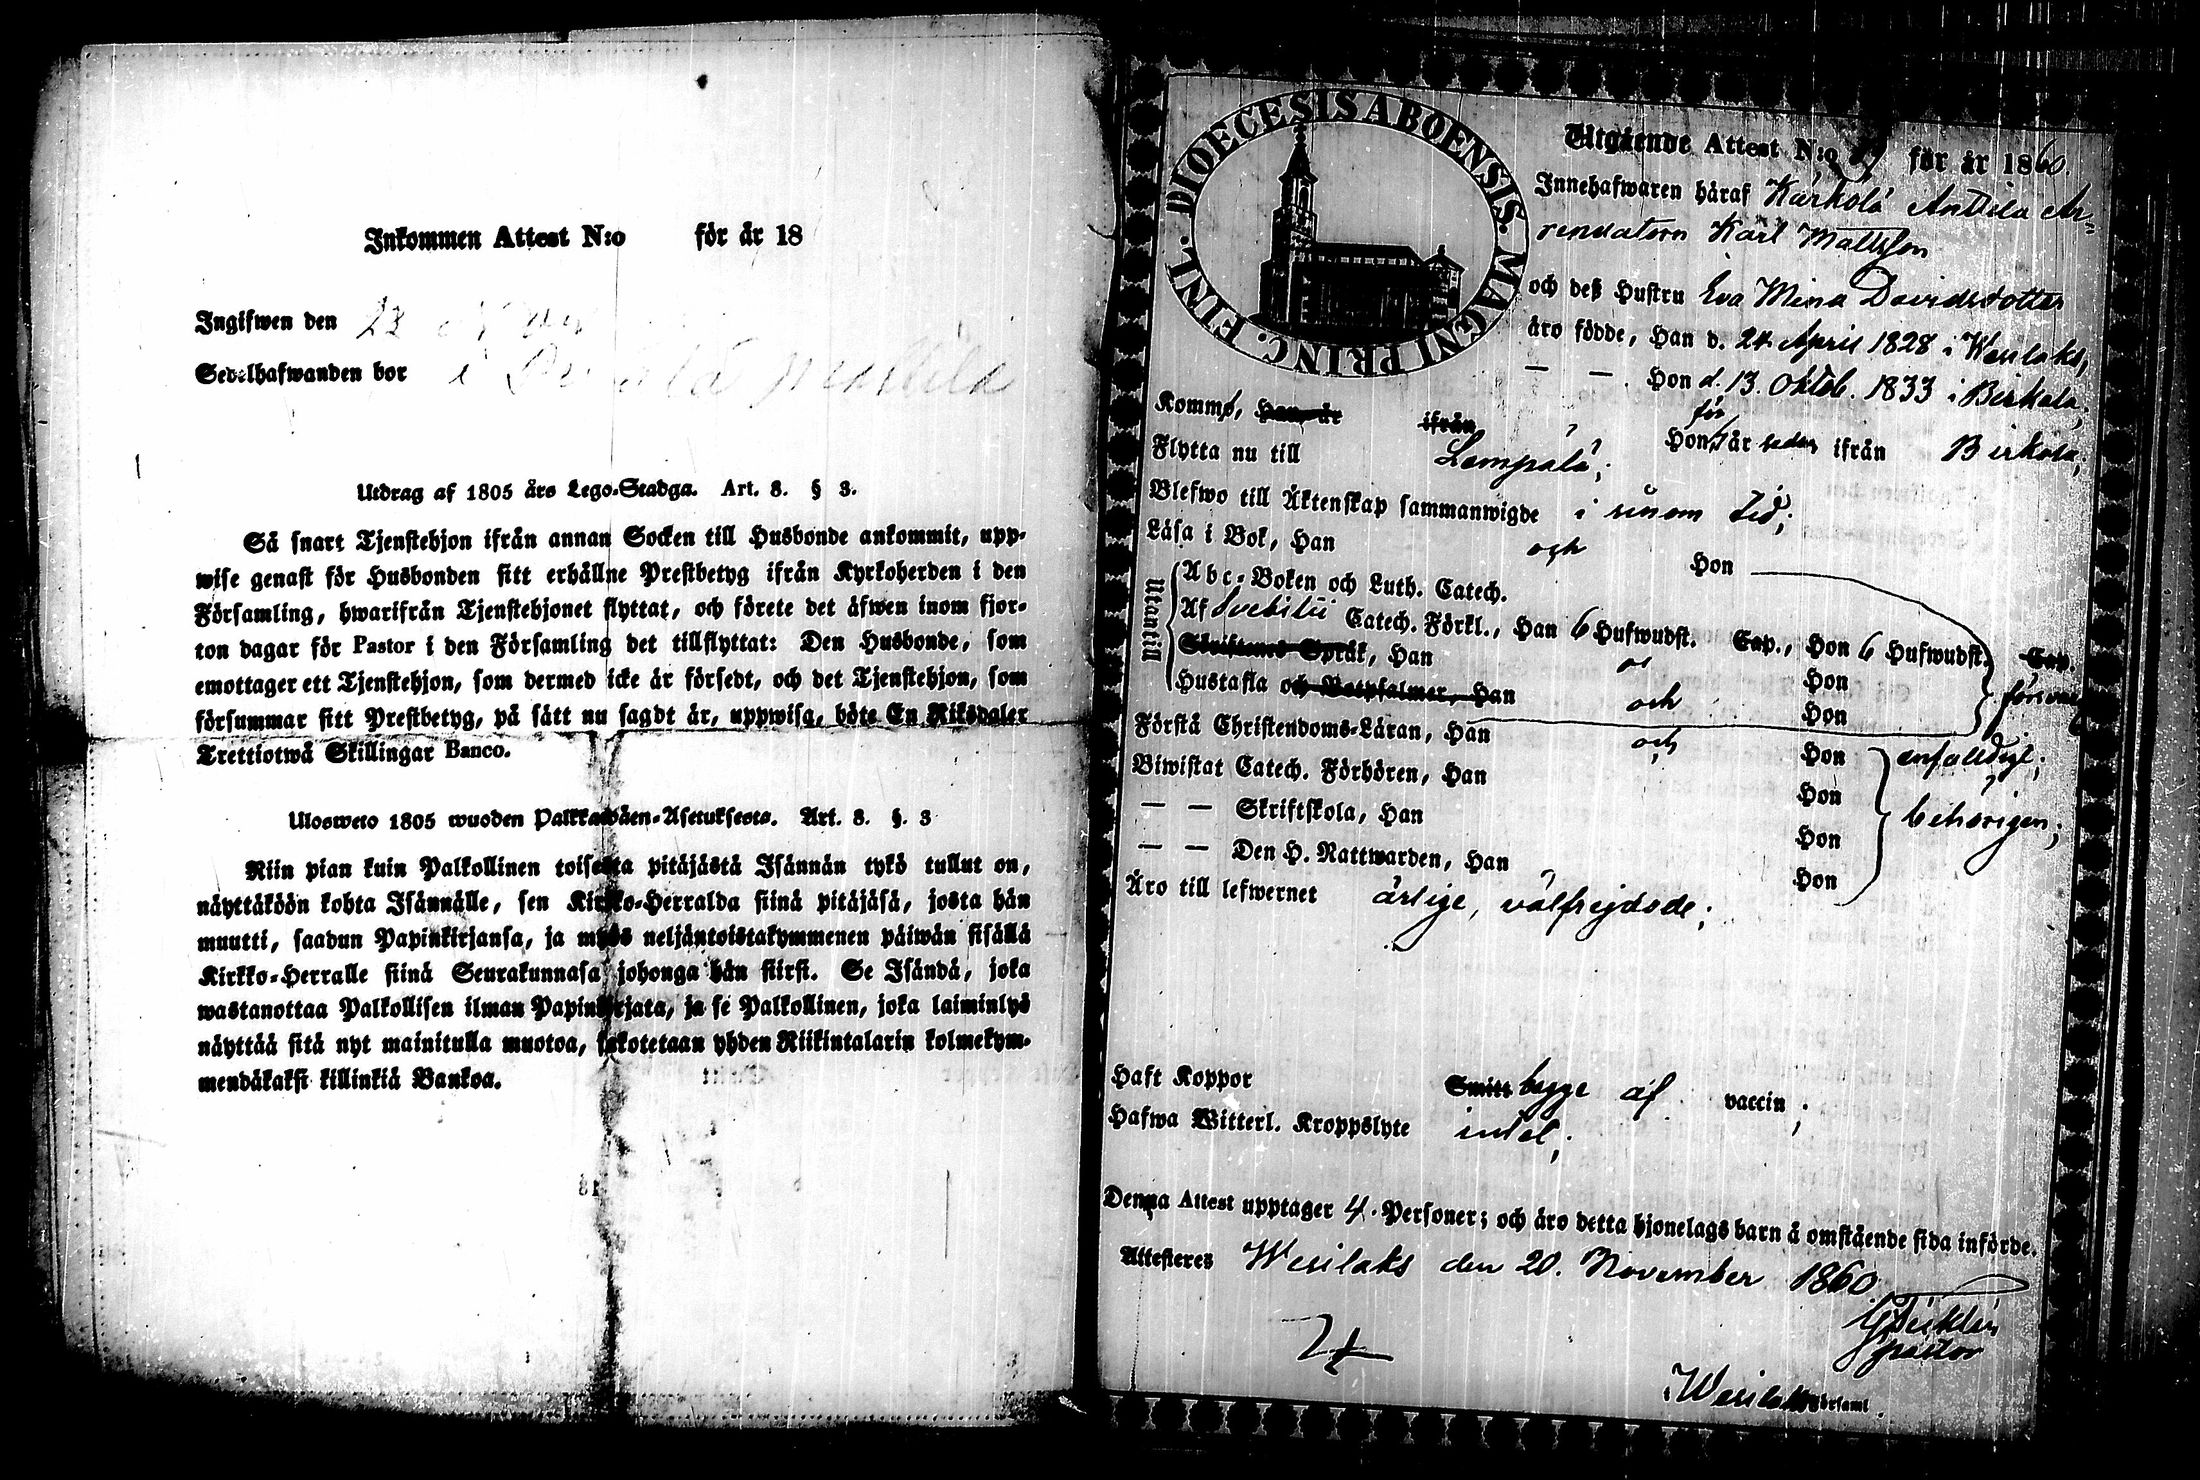 Inkommen Attest N:o för år 18
Ingifwen den 23 Nov
Sedelhafwanden bor i
Utdrag af 1805 års Lego-Stadga. Art. 8. § 3.
Så snart Tjenstehjon ifrån annan Socken till Husbonde ankommit, upp-
wise genast för Husbonden sitt erhållne Prestbetyg ifrån Kyrkoherden i den
Församling, hwarifrån Tjenstehjonet flyttat, och förete det äfwen inom fjor-
ton dagar för Pastor i den Församling det tillflyttat: Den Husbonde, som
emottager ett Tjenstehjon, som dermed icke är försedt, och det Tjenstehjon, som
försummar sitt Prestbetyg, på sätt nu sagdt är, uppwisa, böte En Riksdaler
Trettiotwå Skillingar Banco.
Ulosweto 1805 wuoden Palkkawäen-Asetuksesta. Art. 8. §. 3
Niin pian kuin Palkollinen toisesta pitäjästä Isännän tykö tullut on,
näyttäköön kohta Isännälle, sen Kirkko-Herralda siinä pitäjäsä, josta hän
muutti, saadun Papinkirjansa, ja myös neljäntoistakymmenen päiwän sisällä
Kirkko-Herralle siinä Seurakunnasa johonga hän siirsi. Se Isändä, joka
wastanottaa Palkollisen ilman Papinkirjata, ja se Palkollinen, joka laiminlyö
näyttää sitä nyt mainitulla muotoa, sakotetaan yhden Riikintalarin kolmekym-
mendäkaksi killinkiä Bankoa.
DIOECESIS ABOENSIS. MAGNI PRINC. FINL.
Utgående Attest N:o för år 1860.
Innehafwaren häraf Karkola Anttila Ar-
rendatorn Karl Mattsson
och deß Hustru Eva Mina Davidsdotter
äro födde, Han d. 24 April 1828 i Wesilaks,
— — Hon d. 13. Oktob. 1833 i Birkala;
Kommo, Han år ifrån Hon för år sedan ifrån Birkala;
Flytta nu till Lempälä;
Blefwo till Äktenskap sammanwigde i sinom tid;
Läsa i Bok, Han och Hon
Utantill
Abc-Boken och Luth. Catech.
Af Svebilii Catech. Förkl., Han 6 Hufwudst. Cap., Hon 6 Hufwudst. Cap.
Skriftenes Språk, Han Hon
Hustafla och Botpsalmer, Han och Hon
Förstå Christendoms-Läran, Han och Hon enfalldigt;
Biwistat Catech. Förhören, Han Hon
— — Skriftskola, Han Hon behörigen;
— — Den H. Nattwarden, Han Hon
Äro till lefwernet ärlige, välfrejdade;
Haft Koppor Smitt begge af vaccin;
Hafwa Witterl. Kroppslyte intet;
Denna Attest upptager 4. Personer; och äro detta hjonelags barn å omstående sida införde.
Attesteres Wesilaks den 20. November 1860
pastor
i Wesilaks Församl.